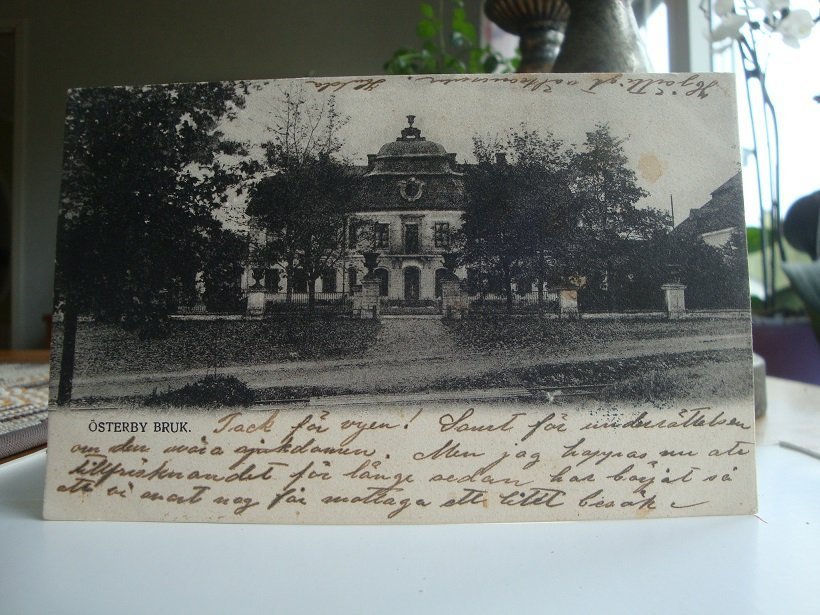 Hjärtligt välkommen. Hulda
ÖSTERBY BRUK. Tack för vyen! Samt för underrättelsen
om den svåra sjukdomen. Men jag hoppas nu att
tillfrisknandet för länge sedan har börjat så
att vi snart nog får mottaga ett litet besök